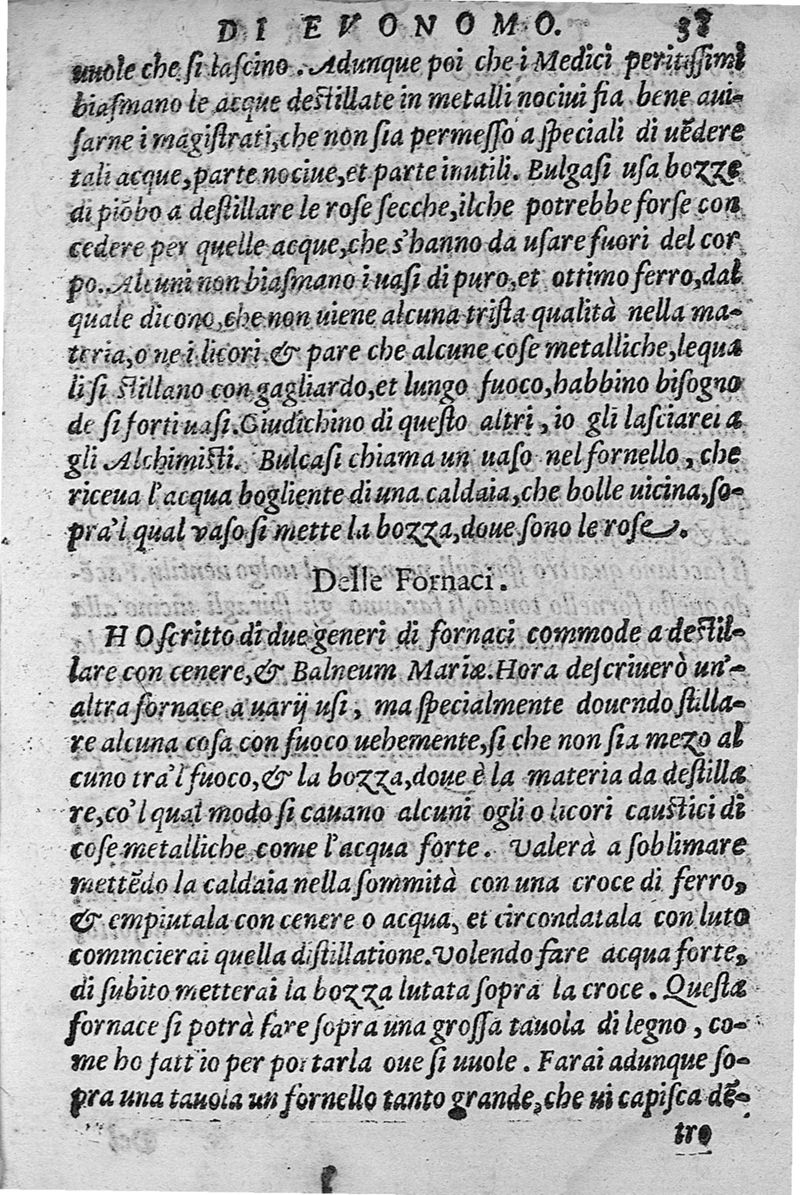 DI EVONOMO. 38
uuole che si lascino. Adunque poi che i Medici peritissimi
biasmano le acque destillate in metalli nociui fia bene aui-
sarne i magistrati, che non sia permesso a speciali di uēdere
tali acque, parte nociue, et parte inutili. Bulgasi usa bozze
di piōbo a destillare le rose secche, ilche potrebbe forse con
cedere per quelle acque, che s'hanno da usare fuori del cor
po. Alcuni non biasmano i uasi di puro, et ottimo ferro, dal
quale dicono, che non uiene alcuna trista qualità nella ma-
teria, o ne i licori & pare che alcune cose metalliche, lequa
li si stillano con gagliardo, et lungo fuoco, habbino bisogno
de si forti uasi. Giudichino di questo altri, io gli lasciarei a
gli Alchimisti. Bulcasi chiama un uaso nel fornello, che
riceua l'acqua bogliente di una caldaia, che bolle uicina, so-
pra'l qual vaso si mette la bozza, doue sono le rose.
Delle Fornaci.
HO scritto di due generi di fornaci commode a destil-
lare con cenere, & Balneum Mariæ. Hora descriuerò un'-
altra fornace a uarij usi, ma specialmente douendo stilla-
re alcuna cosa con fuoco uehemente, si che non sia mezo al
cuno tra'l fuoco, & la bozza, doue è la materia da destilla
re, co'l qual modo si cauano alcuni ogli o licori caustici di
cose metalliche come l'acqua forte. Valerà a soblimare
mettēdo la caldaia nella sommità con una croce di ferro,
& empiutala con cenere o acqua, et circondatala con luto
comincierai quella distillatione. Volendo fare acqua forte,
di subito metterai la bozza lutata sopra la croce. Questa
fornace si potrà fare sopra una grossa tauola di legno, co-
me ho fatt'io per portarla oue si uuole. Farai adunque so-
pra una tauola un fornello tanto grande, che ui capisca dē-
tro